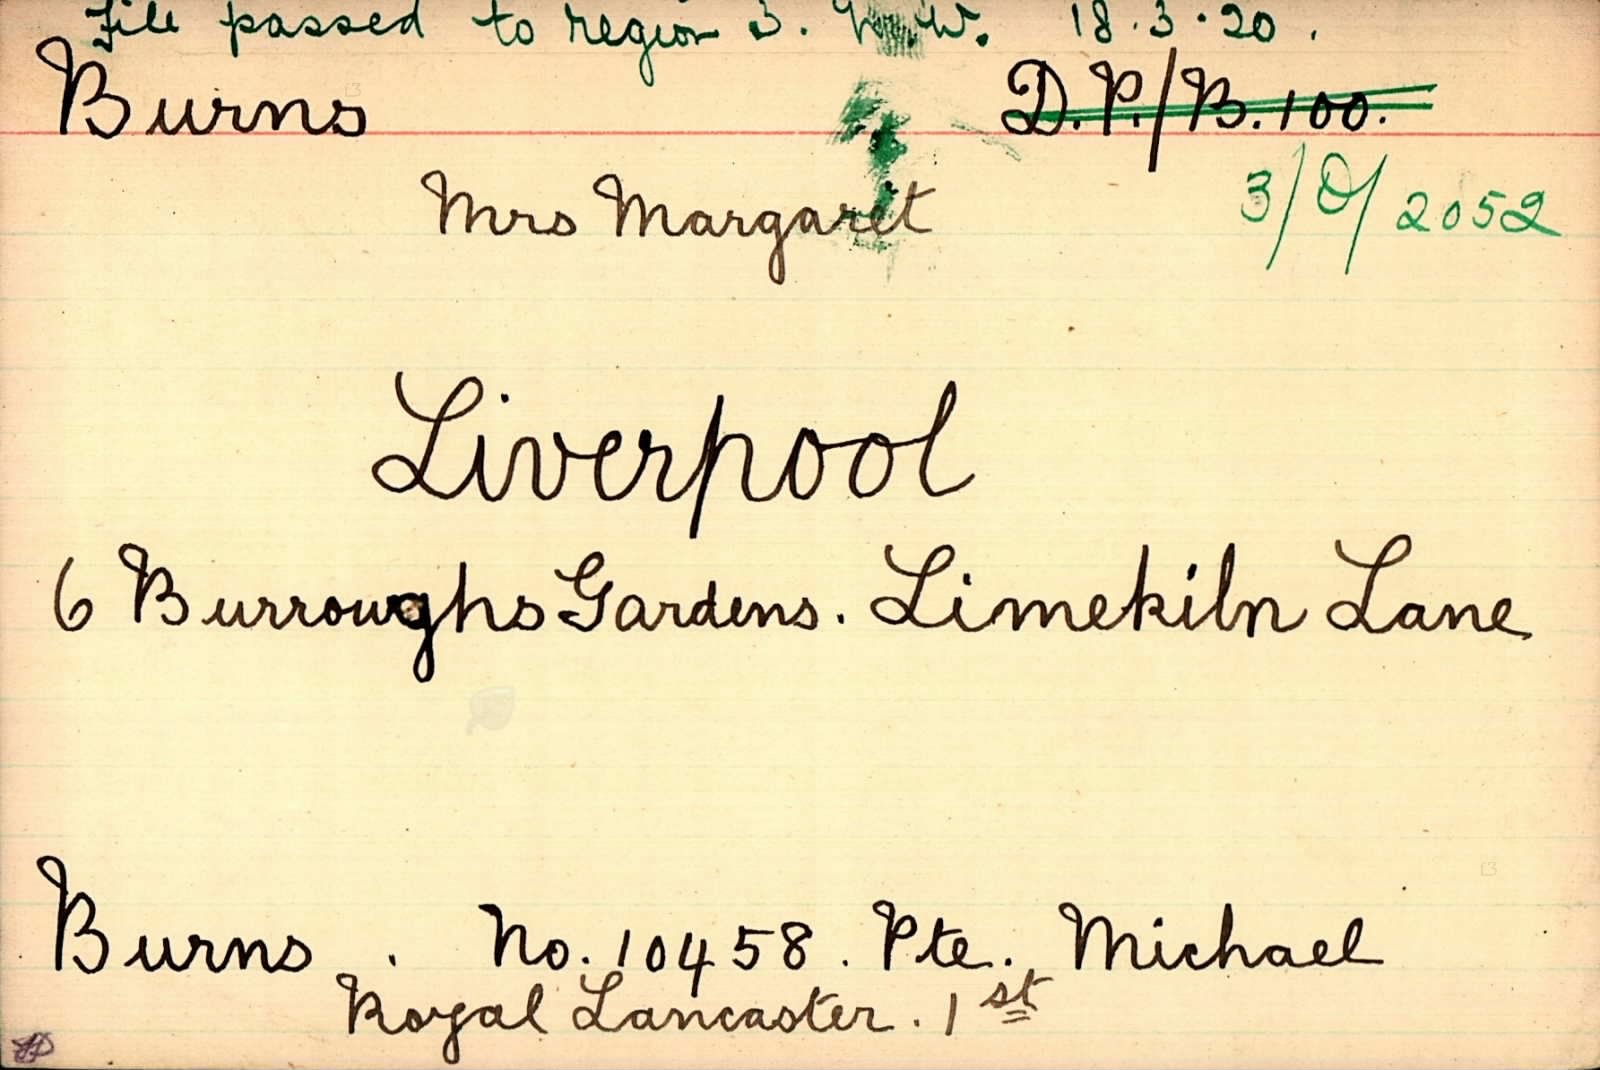 File passed to region 3. W. 18.3.20.
Burns D.P./B.100.
Mrs Margaret 3/D/2052
Liverpool
6 Burroughs Gardens. Limekiln Lane
Burns . No. 10458. Pte. Michael
Royal Lancaster. 1st